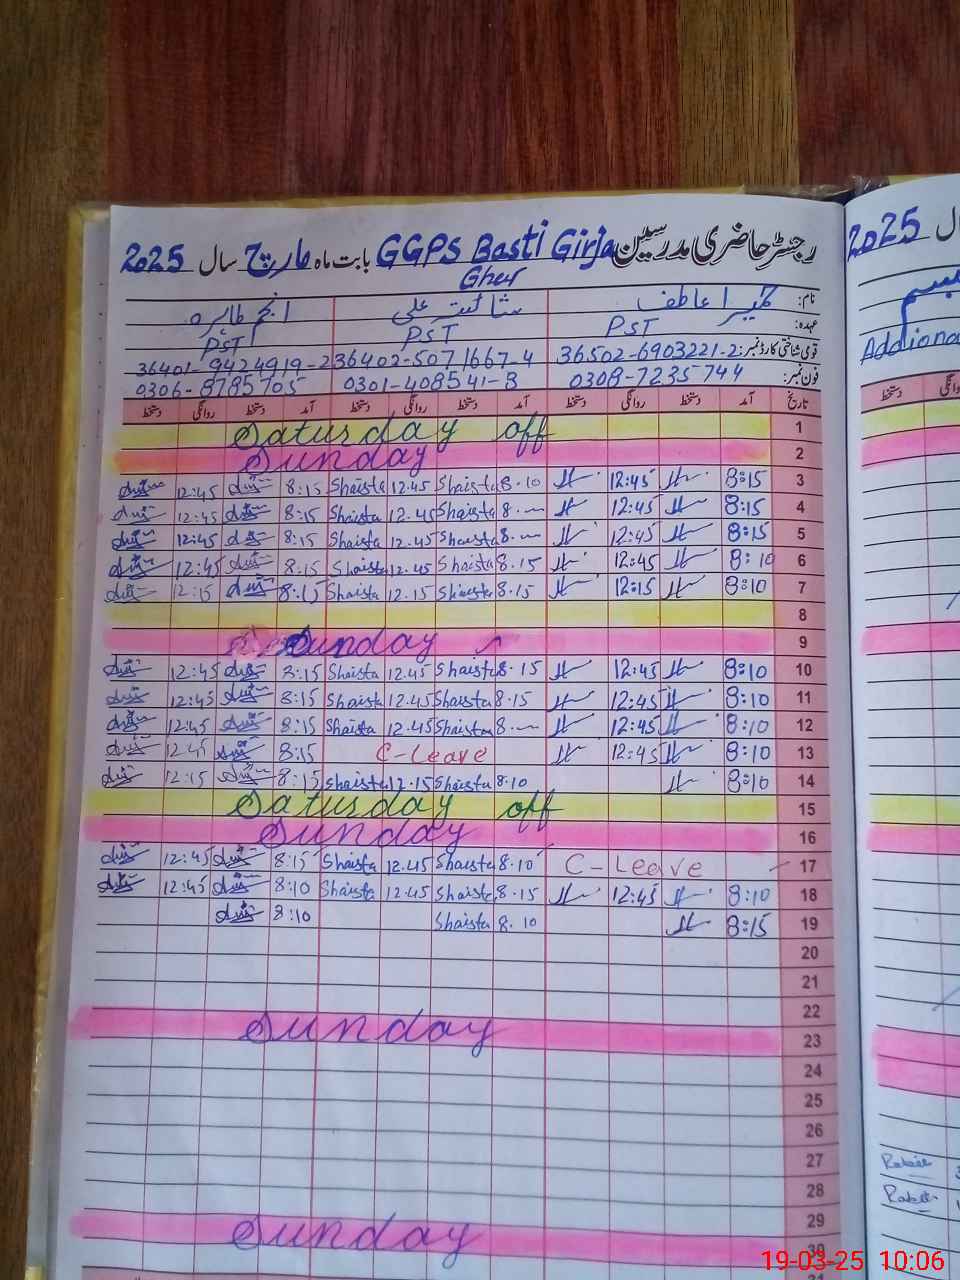 رجسٹر حاضری مدرسین GGPS Basti Girja بابت ماہ مارچ سال 2025
Ghar
نام: حمیرا عاطف شائستہ علی انجم طاہرہ
عہدہ: PST PST PST
قومی شناختی کارڈ نمبر: 36502-6903221-2 36402-5071667-4 36401-9424919-2
فون نمبر: 0308-7235744 0301-408541-8 0306-8785705
تاریخ آمد دستخط روانگی دستخط آمد دستخط روانگی دستخط آمد دستخط روانگی دستخط
Saturday off 1
Sunday 2
12:45 8:15 Shaista 12.45 Shaista 8.10 12:45 8:15 3
12:45 8:15 Shaista 12.45 Shaista 8. 12:45 8:15 4
12:45 8:15 Shaista 12.45 Shaista 8. 12:45 8:15 5
12:45 8:15 Shaista 12.45 Shaista 8.15 12:45 8:10 6
12:15 8:15 Shaista 12.15 Shaista 8.15 12:15 8:10 7
8
Sunday 9
12:45 8:15 Shaista 12.45 Shaista 8.15 12:45 8:10 10
12:45 8:15 Shaista 12.45 Shaista 8.15 12:45 8:10 11
12:45 8:15 Shaista 12.45 Shaista 8. 12:45 8:10 12
12:45 8:15 C-Leave 12:45 8:10 13
12:15 8:15 Shaista 12.15 Shaista 8.10 8:10 14
Saturday off 15
Sunday 16
12:45 8:15 Shaista 12.45 Shaista 8.10 C-Leave 17
12:45 8:10 Shaista 12.45 Shaista 8.15 12:45 8:10 18
8:10 Shaista 8.10 8:15 19
20
21
22
Sunday 23
24
25
26
27
28
29
Sunday 30
2025
Addiona
دستخط
19-03-25 10:06